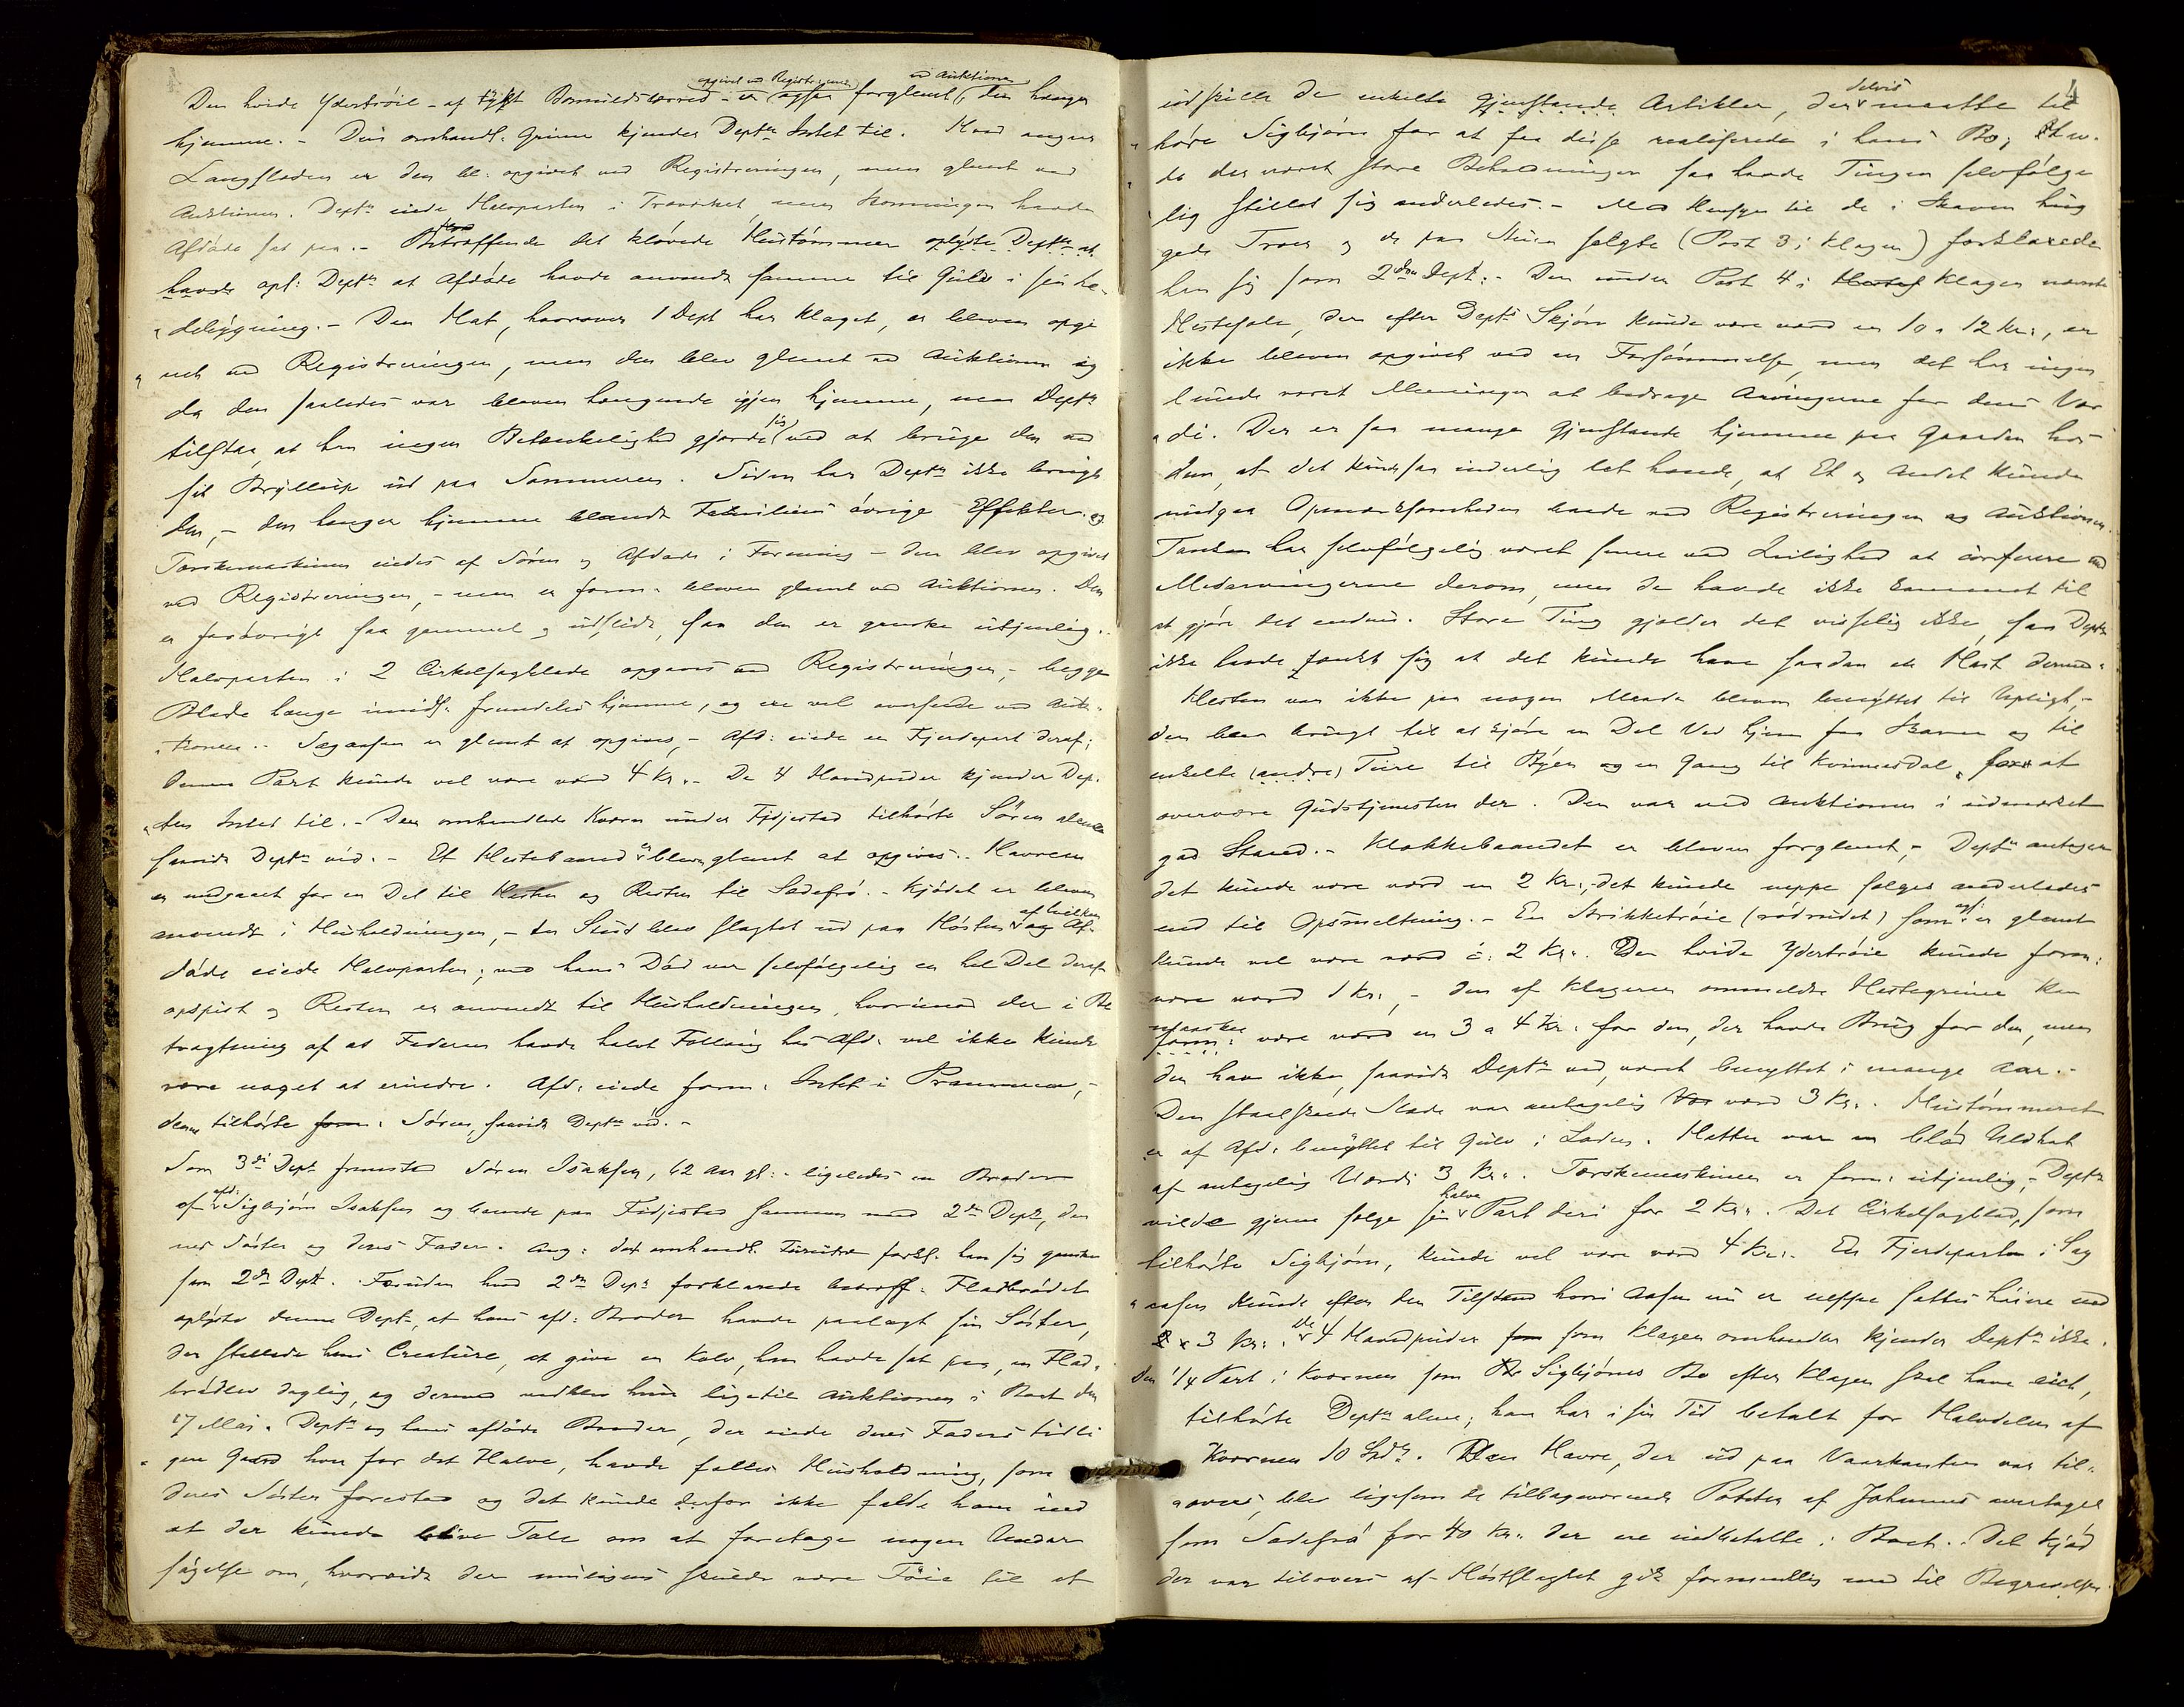 opgivet ved Registreringen ved Auktionen
Den hvide Ydertröie - af tykt Bomuldslærred - er ogsaa forglemt, den hænger
hjemme. - Den omhandl. Grime kjender Deptn Intet til. Hvad angaar
Langsladen er den bl. opgivet ved Registreringen, men glemt ved
Auktionen. Deptn eiede Halvparten i Træværket, men Skoningen havde
Afdöde sat paa. - Betræffende det klövede Hustömmer oplyste Deptn at
havde opl: Deptn at Afdöde havde anvendt samme til Gulv i sin La-
debygning. - Den Hat, hvorover 1 Dept har klaget, er bleven opgi
vet ved Registreringen, men den blev glemt ved Auktionen og
da den saaledes var bleven hængende igjen hjemme, men Deptn
tilstaa, at han ingen Betænkelighed gjorde sig ved at bruge den ved
sit Bryllup ud paa Sommeren. Siden har Deptn ikke brugt
den, - den hænger hjemme blandt Familiens övrige Effekter og
Tærskemaskinen eiedes af Sören og Afdöde i Forening - den blev opgivet
ved Registreringen, - men er form. bleven glemt ved Auktionen. Den
er forövrigt saa gammel og udslidt, saa den er ganske utjenlig.
Halvparten i 2 Cirkelsagblade opgaves ved Registreringen, - begge
Blade hænge imidl. fremdeles hjemme, og ere vel oversede ved Auk-
tionen. - Sagaasen er glemt at opgives, - Afd: eiede en Fjerdepart deraf;
denne Part kunde vel være værd 4 Kr. - De 4 Hovedpuder kjender Dep-
ten Intet til. - Den omhandlede Kværn under Fidjestad tilhörte Sören alene
saavidt Deptn ved. - Et Hestebaand er blevet glemt at opgives. Havren
er medgaaet for en Del til Hesten og Resten til Sædefrö. - Kjödet er bleven
anvendt i Husholdningen, - den Stud blev slagtet ud paa Hösten af hvilken Af-
döde eiede Halvparten; ved hans Död var selvfölgelig en hel Del deraf
opspist og Resten er anvendt til Husholdningen, hvorimod der i Be
tragtning af at Faderen havde halvt Fölling hos Afd. vel ikke kunde
være noget at erindre. Afd: eiede form: Intet i Prammen, -
denne tilhörte form: Sören, saavidt Deptn ved. -
Som 3die Dept fremstod Sören Isaksen, 62 Aar gl: - ligeledes en Broder
af afd. Sigbjörn Isaksen og boende paa Fidjestad sammen med 2den Dept, den
ned Söster og deres Fader. Ang: det omhandl. forkl. han sig ganske
som 2den Dept. Foruden hvad 2den Dept forklarede betræff. Fladbrödet
oplyste denne Deptn, at hans afd: Broder havde paalagt sin Söster,
der stellede hans Creature, at give en Kalv, han havde sat paa, en Flad-
brödlev daglig, og dermed vedblev hun ligetil Auktionen i Boet den
17 Mai. Deptn og hans afdöde Broder, der eiede deres Faders tidli
gere Gaard hver for det Halve, havde fælles Husholdning, som
deres Söster forestod og det kunde derfor ikke falde ham ind
at der kunde blive Tale om at foretage nogen Under
sögelse om, hvorvidt der muligens skulde være Föie til at
4
udskille de enkelte Gjenstande Artikler, der delvis maatte til
höre Sigbjörn for at faa disse realiserede i hans Bo;
de der været store Beholdninger saa havde Tingen selvfölge
lig stillet sig anderledes. - Med Hensyn til de i Skoven hug
gede Træer og de paa Stuen solgte (Post 3 i Klagen) forklarede
han sig som 2den Dept. - Den under Post 4 i Klagen nævnte
Hestesale, der efter Deptn Skjön kunde være værd en 10 a 12 Kr., er
ikke bleven opgivet ved en Forsömmelse, men det har ingen
lunde været Meningen at bedrage Arvingerne for dens Vær
di. Der er saa mange Gjenstande hjemme paa Gaarden hos
dem, at det kunde saa inderlig let hænde, at Et og Andet kunde
undgaa Opmærksomheden baade ved Registreringen og Auktionen.
Tanken har selvfölgelig været senere ved Leilighed at konferere med
Medarvingerne derom, men de havde ikke kommet til
at gjöre det endnu. Store Ting gjælder det visselig ikke, saa Deptn
ikke havde tænkt sig at det kunde have saadan en Hast dermed.
Hesten var ikke paa nogen Maade bleven benyttet til Upligt, -
den blev brugt til at kjöre en Del Ved hjem fra Skoven og til
enkelte (andre) Ture til Byen og en Gang til Kvinesdal for at
overvære Gudstjenesten der. Den var ved Auktionen i udmærket
god Stand. - Klokkebaandet er bleven forglemt, - Deptn antager
det kunde være værd en 2 Kr., det kunde neppe sælges anderledes
end til Opsmeltning. - En Strikketröie (rödrudet) som opl. er glemt
kunde vel være værd c: 2 Kr. Den hvide Ydertröie kunde form:
være værd 1 Kr., - den af Klageren anmeldte Hestegrime kan
maaske form: være værd en 3 a 4 Kr. for den, der havde Brug for den, men
den har ikke, saavidt Deptn ved, været benyttet i mange Aar. -
Den staalskoede Slæde var antagelig værd 3 Kr. Hustömmeret
er af Afd. benyttet til Gulv i Laden. Hatten var en blöd Uldhat
af antagelig Værdi 3 Kr. Tærskemaskinen er form: utjenlig, - Deptn
vilde gjerne sælge sin halve Part deri for 2 Kr. Det Cirkelsagblad, som
tilhörte Sigbjörn, kunde vel være værd 4 Kr. En Fjerdepart i Sag
aasen kunde efter den Tilstand hvori Aasen nu er neppe sættes höiere end
3 Kr. De 4 Hovedpuder som Klagen omhandler kjender Deptn ikke.
den 1/4 Part i Kværnen som Sigbjörns Bo efter Klagen skal have eiet,
tilhörte Deptn alene; han har i sin Tid betalt for Halvdelen af
Kværnen 10 Spd. Den Havre, der ud paa Vaarkanten var til-
overs, blev ligesom de tilbageværende Poteter af Johannes overtaget
som Sædefrö for 40 Kr. der ere indbetalte i Boet. Det Kjöd
der var tilovers af Höstslagtet gik formentlig med til Begravelsen.